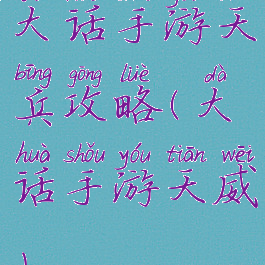 大话手游天
bīng gōng lüè dà
兵攻略(大
huà shǒu yóu tiān wēi
话手游天威
)